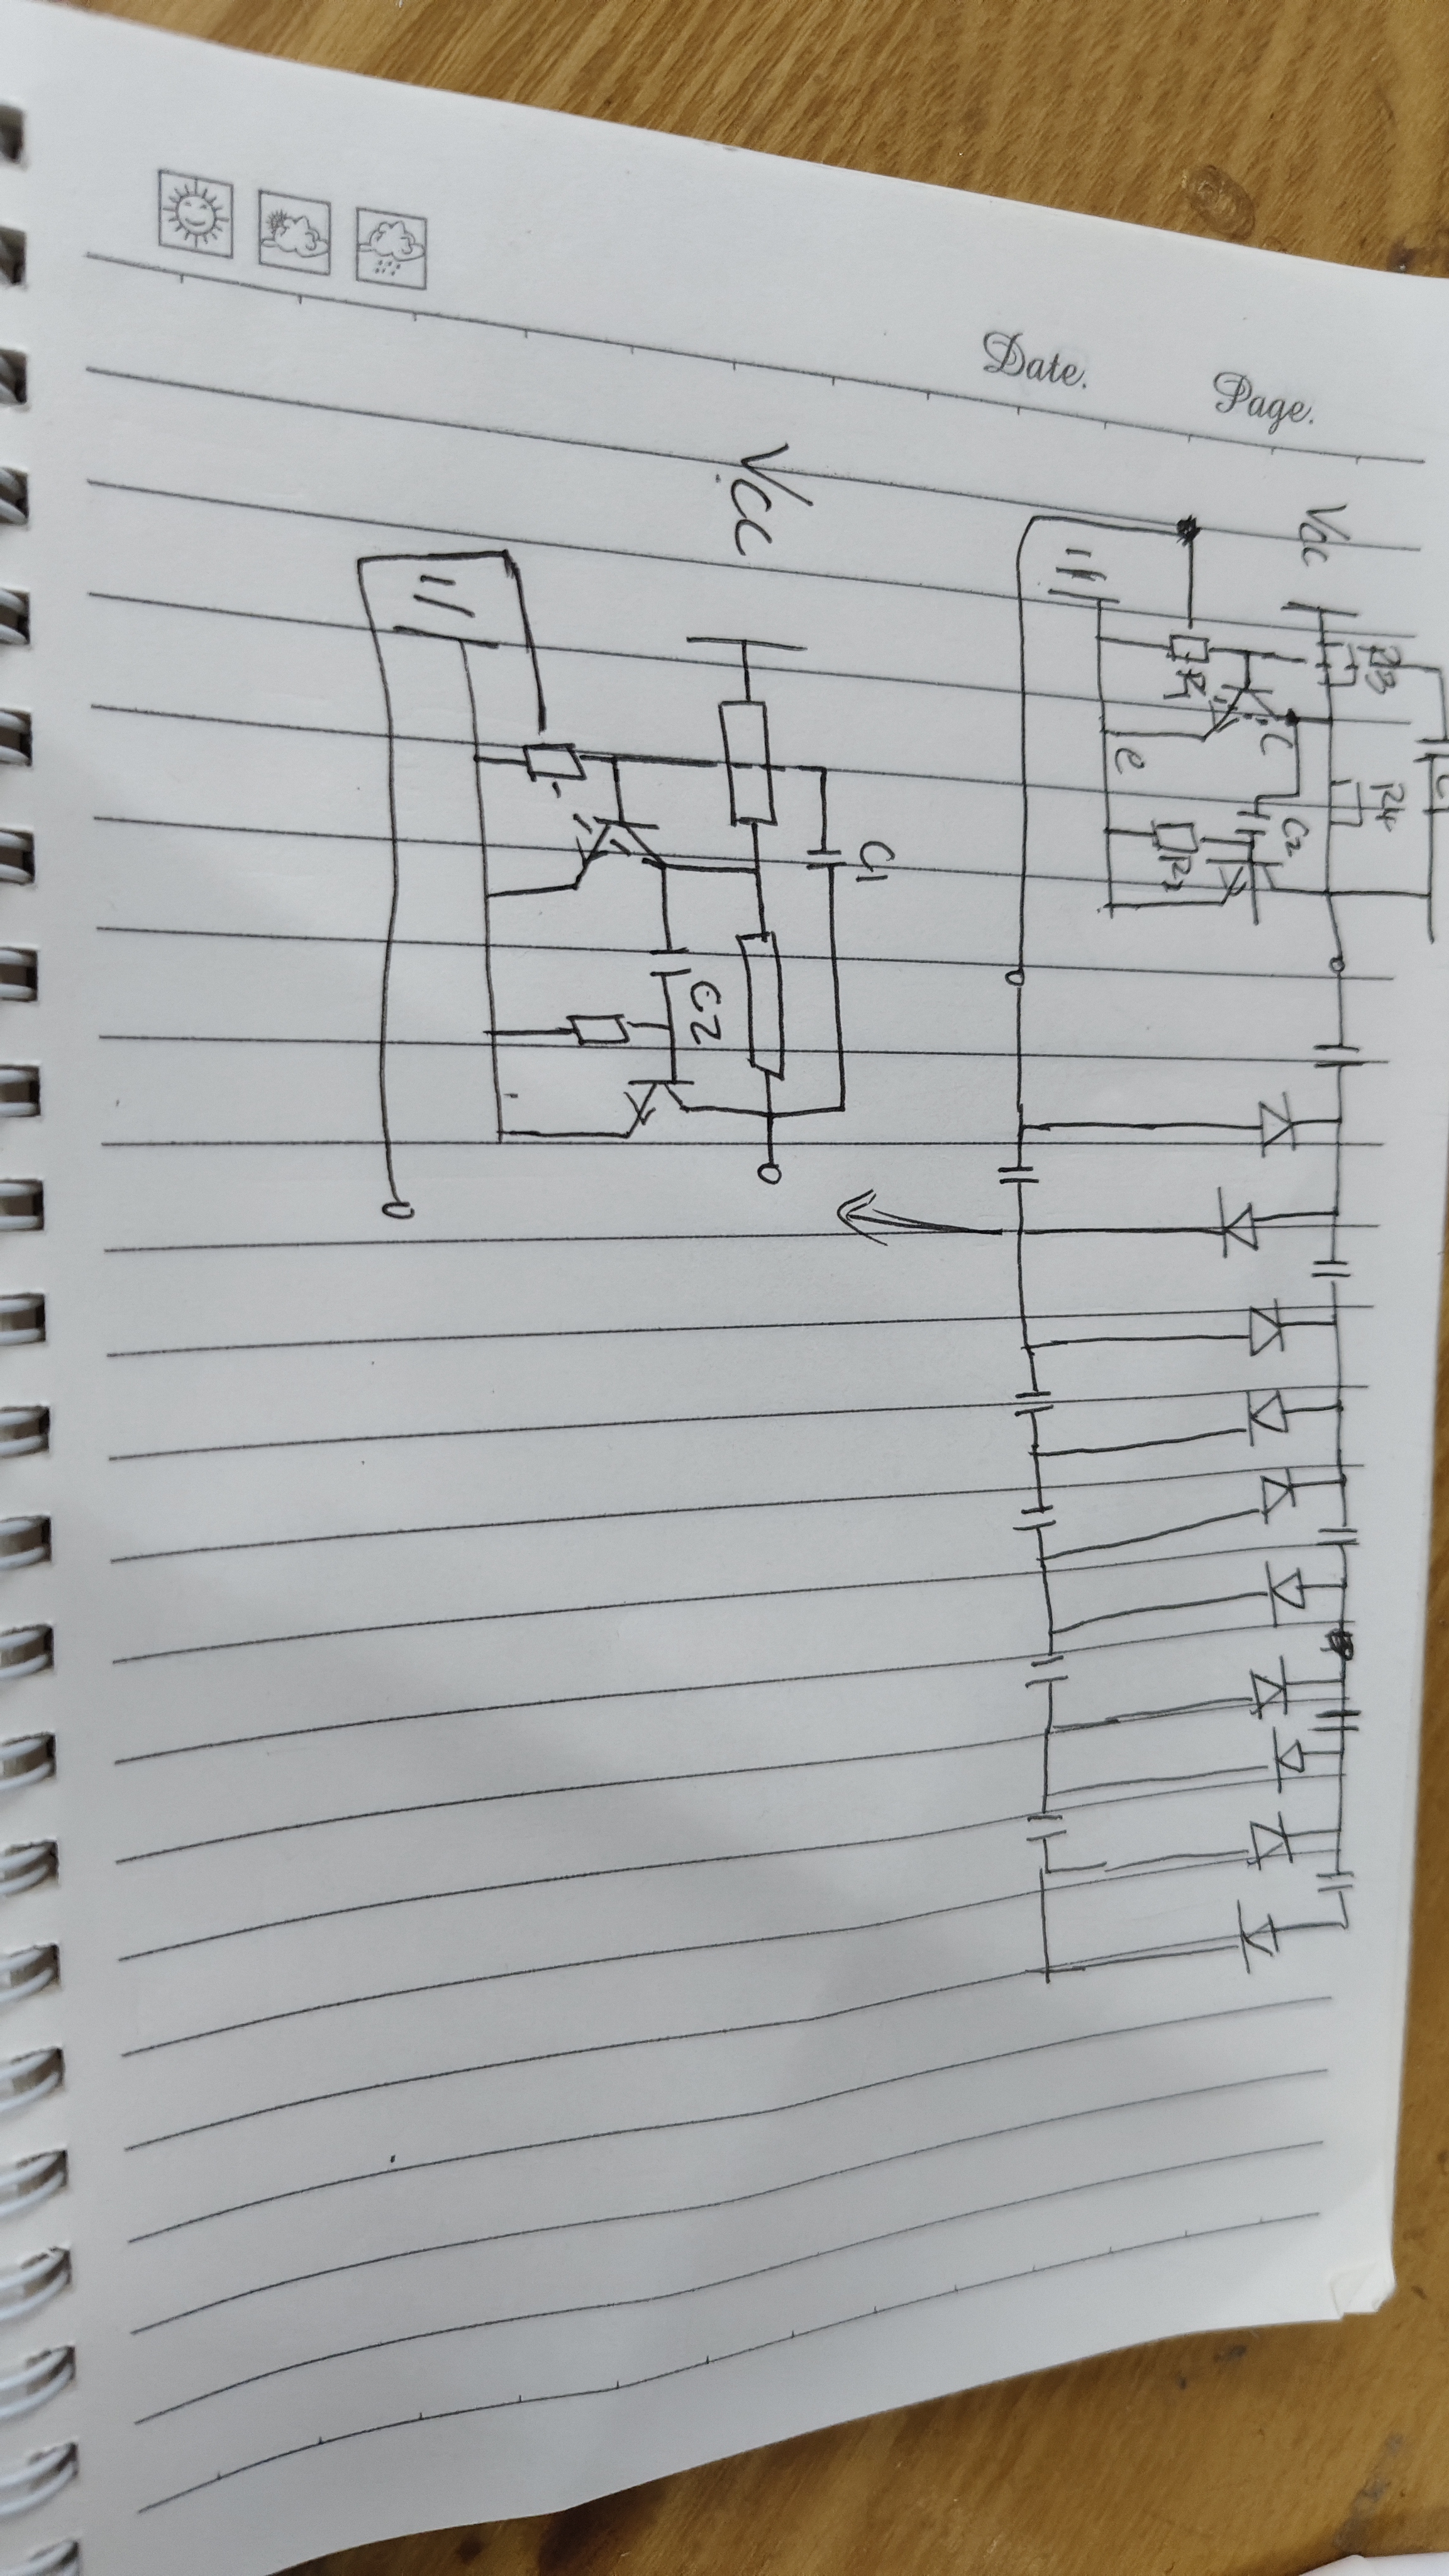 Date.
Page.
Vcc
R3
R4
R1
C
e
C2
R2
Vcc
C1
C2